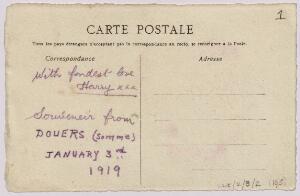 1
CARTE POSTALE
Tous les pays étrangers n'acceptant pas la correspondance au recto, se renseigner à la Poste.
Correspondance
Adresse
With fondest love
Harry xxx
Souvenir from
DOUERS (Somme)
JANUARY 3rd
1919